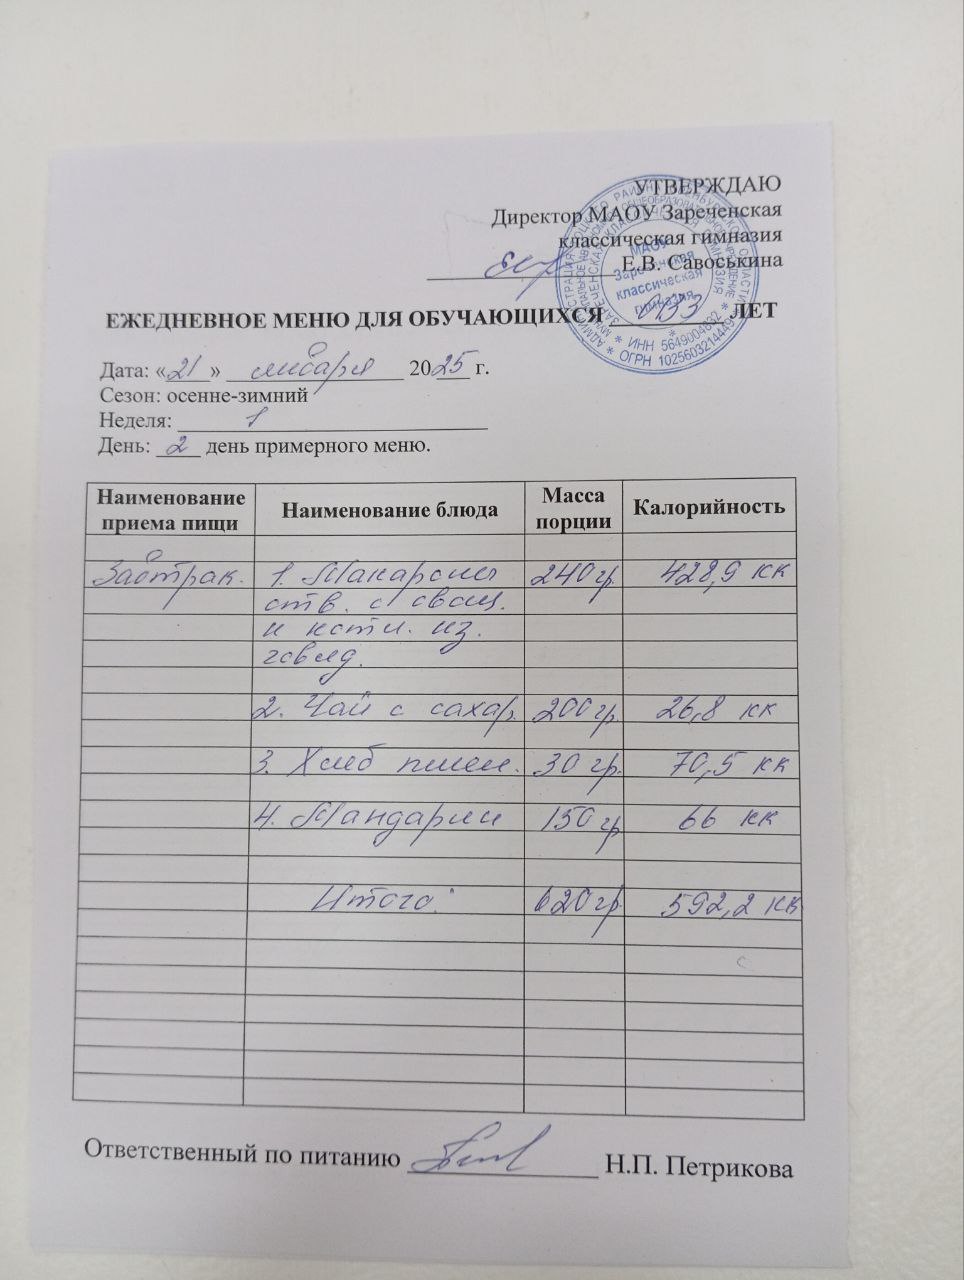 УТВЕРЖДАЮ
Директор МАОУ Зареченская
классическая гимназия
Е.В. Савоськина
МАОУ
Зареченская
классическая
гимназия
ИНН 5649004632 * ОГРН 1025603214449
ЕЖЕДНЕВНОЕ МЕНЮ ДЛЯ ОБУЧАЮЩИХСЯ ЛЕТ
Дата: «21» января 2025 г.
Сезон: осенне-зимний
Неделя: 1
День: 2 день примерного меню.
Наименование приема пищи Наименование блюда Масса порции Калорийность
Завтрак. 1. Макароны 240 гр. 428,9 кк
отв. с овощ.
и котл. из.
говяд.
2. Чай с сахар. 200 гр. 26,8 кк
3. Хлеб пшен. 30 гр. 70,5 кк
4. Мандарин 150 гр 66 кк
Итого: 620 гр. 592,2 кк
Ответственный по питанию Н.П. Петрикова